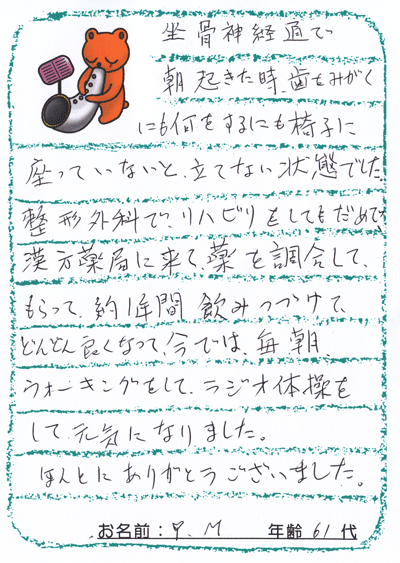 坐骨神経通で
朝起きた時、歯をみがく
にも何をするにも椅子に
座っていないと、立てない状態でした。
整形外科で、リハビリをしてもだめで、
漢方薬局に来て薬を調合して、
もらって、約1年間 飲みつづけて、
どんどん良くなって、今では、毎朝、
ウォーキングをして、ラジオ体操を
して、元気になりました。
ほんとにありがとうございました。
お名前:Y.M 年齢 61 代